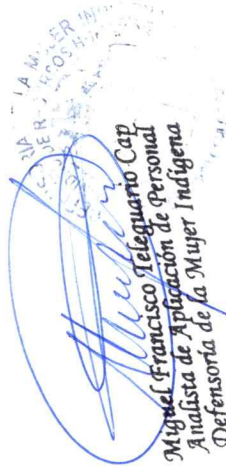 Miguel Francisco Teleguario Cap
Analista de Aplicación de Personal
Defensoría de la Mujer Indígena